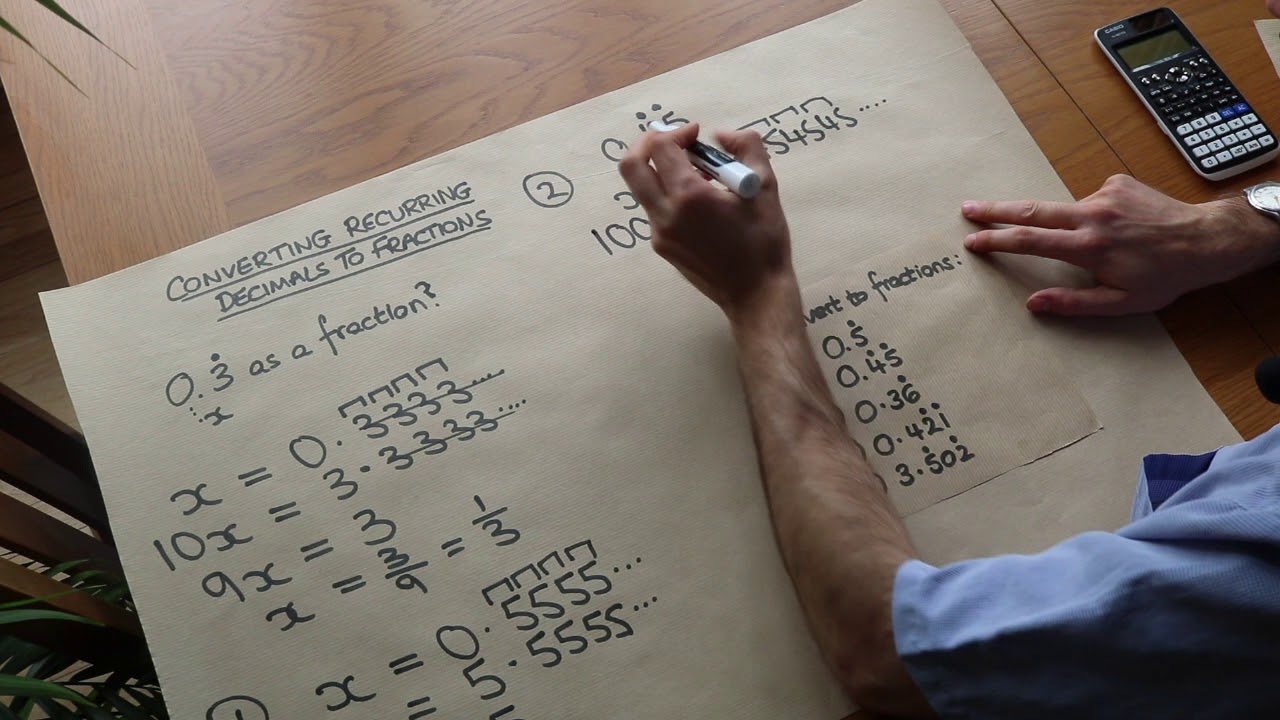 CONVERTING RECURRING
DECIMALS TO FRACTIONS
0.3̇ as a fraction?
x
x = 0.3333....
10x = 3.3333....
9x = 3
x = 3/9 = 1/3
1
x = 0.5555...
= 5.5555...
2
0. 5 54545....
x
100
vert to fractions:
0.5̇
0.4̇5̇
0.36̇
0.42̇1̇
3.5̇02̇
CASIO